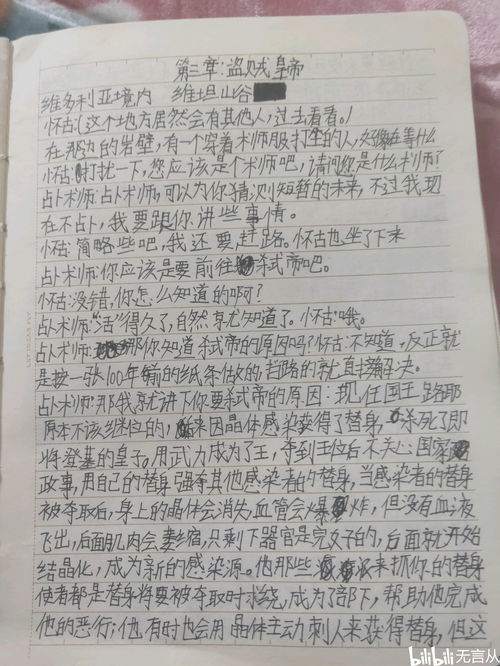 第三章：盗贼皇帝
维多利亚境内 维坦山谷
怀古：（这个地方居然会有其他人，过去看看。）
在那边的岩壁，有一个穿着术师服打坐的人，好像在等什么
怀古：打扰一下，您应该是个术师吧，请问你是什么术师？
占卜术师：占卜术师，可以为你猜测短暂的未来，不过我现
在不占卜，我要跟你讲些事情。
怀古：简略些吧，我还要赶路。怀古也坐了下来
占卜术师：你应该是要前往杀弑帝吧。
怀古：没错，你怎么知道的啊？
占卜术师：“活”得久了，自然就知道了。怀古：哦。
占卜术师：那你知道弑帝的原因吗？怀古：不知道，反正就
是按一张100年前的纸条做的，挡路的就直接解决。
占卜术师：那我就讲下你要弑帝的原因：现任国王路耶
原本不该继位的，后来因晶体感染获得了替身，杀死了即
将登基的皇子。用武力成为了王，夺到王位后不关心国家
政事，用自己的替身强夺其他感染者的替身，当感染者的替身
被夺取后，身上的晶体会消失，血管会爆炸，但没有血液
飞出，后面肌肉会萎缩，只剩下器官是完好的，后面就开始
结晶化，成为新的感染源。他那些派来抓你的替身
使者都是替身将要被夺取时求饶，成为了部下，帮助他完成
他的恶行；他有时也会用晶体主动刺人来获得替身，但这
bilibili 无言从